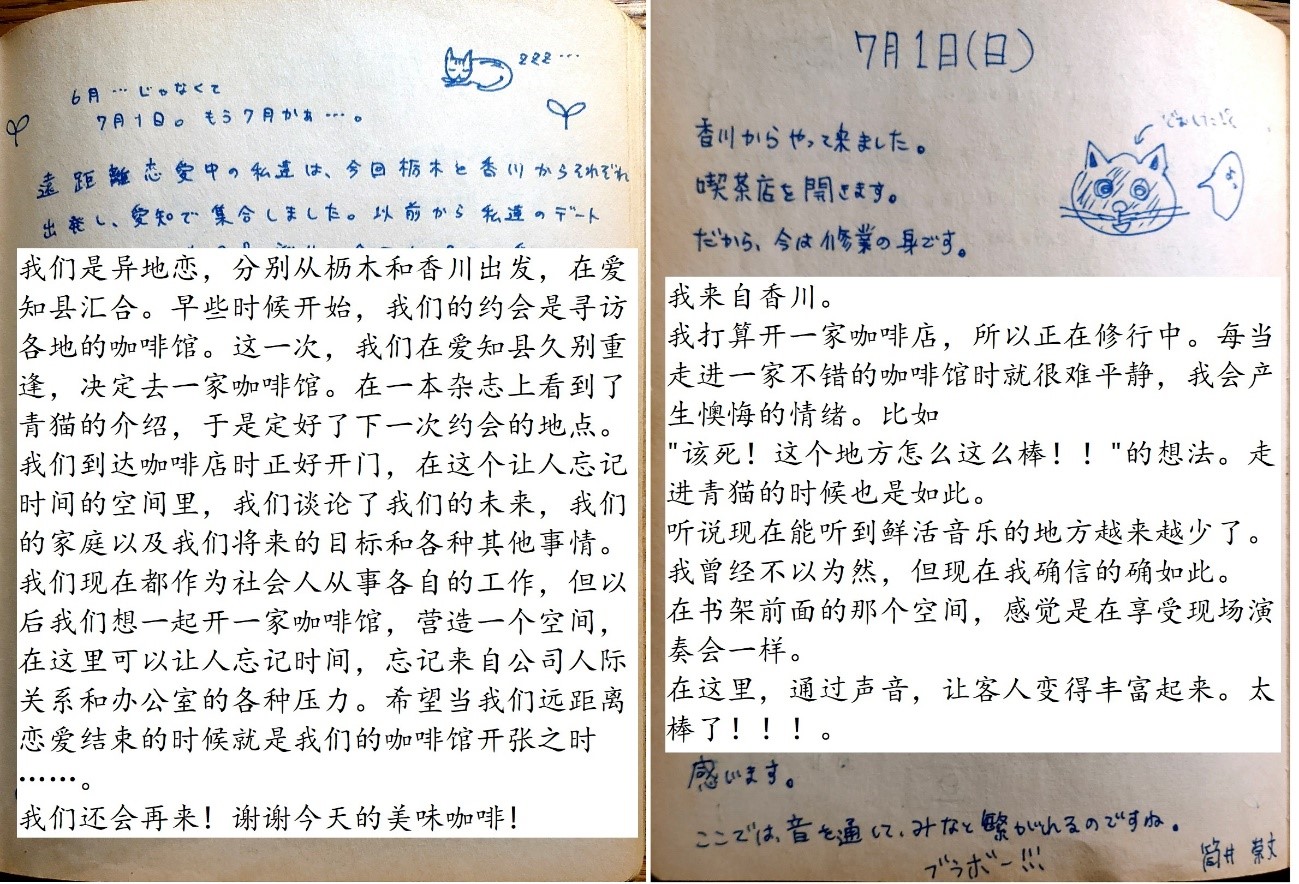 zzz…
6月…じゃなくて
7月1日。もう7月かぁ…。
遠距離恋愛中の私達は、今回栃木と香川からそれぞれ
出発し、愛知で集合しました。以前から私達のデート
我们是异地恋，分别从枥木和香川出发，在爱
知县汇合。早些时候开始，我们的约会是寻访
各地的咖啡馆。这一次，我们在爱知县久别重
逢，决定去一家咖啡馆。在一本杂志上看到了
青猫的介绍，于是定好了下一次约会的地点。
我们到达咖啡店时正好开门，在这个让人忘记
时间的空间里，我们谈论了我们的未来，我们
的家庭以及我们将来的目标和各种其他事情。
我们现在都作为社会人从事各自的工作，但以
后我们想一起开一家咖啡馆，营造一个空间，
在这里可以让人忘记时间，忘记来自公司人际
关系和办公室的各种压力。希望当我们远距离
恋爱结束的时候就是我们的咖啡馆开张之时
……。
我们还会再来！谢谢今天的美味咖啡！
7月1日(日)
香川からやって来ました。
喫茶店を開きます。
だから、今は修業の身です。
我来自香川。
我打算开一家咖啡店，所以正在修行中。每当
走进一家不错的咖啡馆时就很难平静，我会产
生懊悔的情绪。比如
"该死！这个地方怎么这么棒！！"的想法。走
进青猫的时候也是如此。
听说现在能听到鲜活音乐的地方越来越少了。
我曾经不以为然，但现在我确信的确如此。
在书架前面的那个空间，感觉是在享受现场演
奏会一样。
在这里，通过声音，让客人变得丰富起来。太
棒了！！！。
感います。
ここでは、音を通して、みなと繋がれるのですね。
ブラボー!!!
筒井